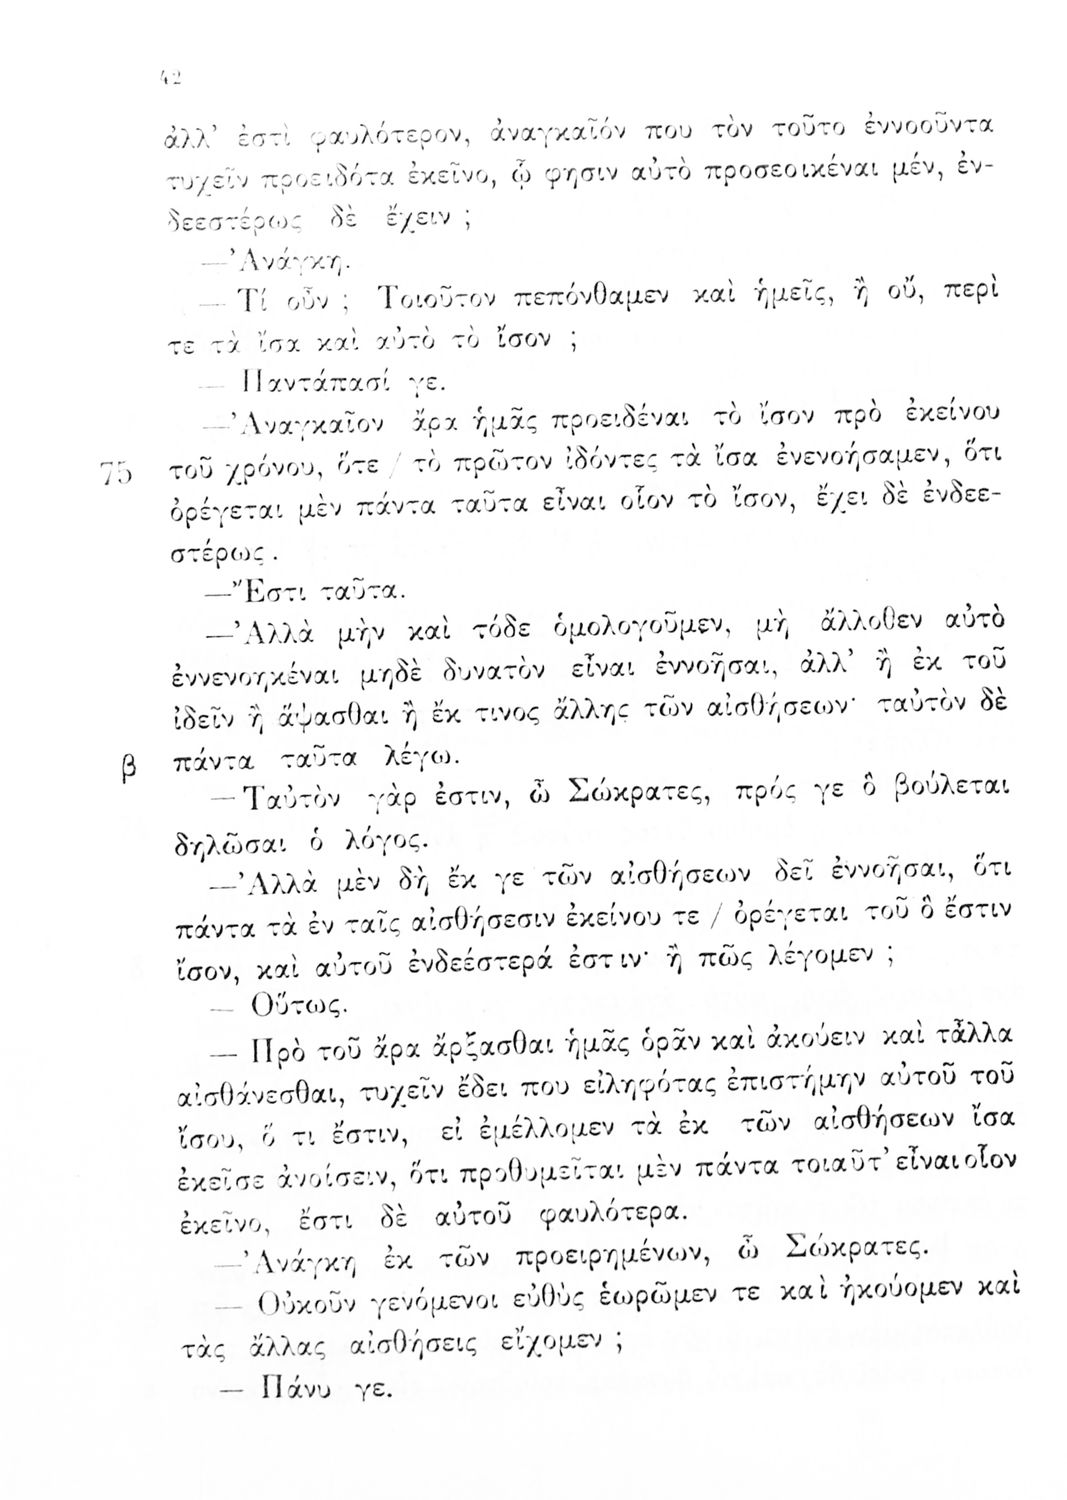 42
ἀλλ’ ἐστὶ φαυλότερον, ἀναγκαῖόν που τὸν τοῦτο ἐννοοῦντα
τυχεῖν προειδότα ἐκεῖνο, ᾧ φησιν αὐτὸ προσεοικέναι μέν, ἐν-
δεεστέρως δὲ ἔχειν ;
—’Ανάγκη.
— Τί οὖν ; Τοιοῦτον πεπόνθαμεν καὶ ἡμεῖς, ἢ οὔ, περὶ
τε τὰ ἴσα καὶ αὐτὸ τὸ ἴσον ;
— Παντάπασί γε.
—’Αναγκαῖον ἄρα ἡμᾶς προειδέναι τὸ ἴσον πρὸ ἐκείνου
75 τοῦ χρόνου, ὅτε / τὸ πρῶτον ἰδόντες τὰ ἴσα ἐνενοήσαμεν, ὅτι
ὀρέγεται μὲν πάντα ταῦτα εἶναι οἷον τὸ ἴσον, ἔχει δὲ ἐνδεε-
στέρως .
—῎Εστι ταῦτα.
—’Αλλὰ μὴν καὶ τόδε ὁμολογοῦμεν, μὴ ἄλλοθεν αὐτὸ
ἐννενοηκέναι μηδὲ δυνατὸν εἶναι ἐννοῆσαι, ἀλλ’ ἢ ἐκ τοῦ
ἰδεῖν ἢ ἅψασθαι ἢ ἔκ τινος ἄλλης τῶν αἰσθήσεων· ταὐτὸν δὲ
β πάντα ταῦτα λέγω.
— Ταὐτὸν γάρ ἐστιν, ὦ Σώκρατες, πρός γε ὃ βούλεται
δηλῶσαι ὁ λόγος.
—’Αλλὰ μὲν δὴ ἔκ γε τῶν αἰσθήσεων δεῖ ἐννοῆσαι, ὅτι
πάντα τὰ ἐν ταῖς αἰσθήσεσιν ἐκείνου τε / ὀρέγεται τοῦ ὃ ἔστιν
ἴσον, καὶ αὐτοῦ ἐνδεέστερά ἐστιν· ἢ πῶς λέγομεν ;
— Οὕτως.
— Πρὸ τοῦ ἄρα ἄρξασθαι ἡμᾶς ὁρᾶν καὶ ἀκούειν καὶ τἆλλα
αἰσθάνεσθαι, τυχεῖν ἔδει που εἰληφότας ἐπιστήμην αὐτοῦ τοῦ
ἴσου, ὅ τι ἔστιν, εἰ ἐμέλλομεν τὰ ἐκ τῶν αἰσθήσεων ἴσα
ἐκεῖσε ἀνοίσειν, ὅτι προθυμεῖται μὲν πάντα τοιαῦτ’ εἶναι οἷον
ἐκεῖνο, ἔστι δὲ αὐτοῦ φαυλότερα.
—’Ανάγκη ἐκ τῶν προειρημένων, ὦ Σώκρατες.
— Οὐκοῦν γενόμενοι εὐθὺς ἑωρῶμεν τε καὶ ἠκούομεν καὶ
τὰς ἄλλας αἰσθήσεις εἴχομεν ;
— Πάνυ γε.